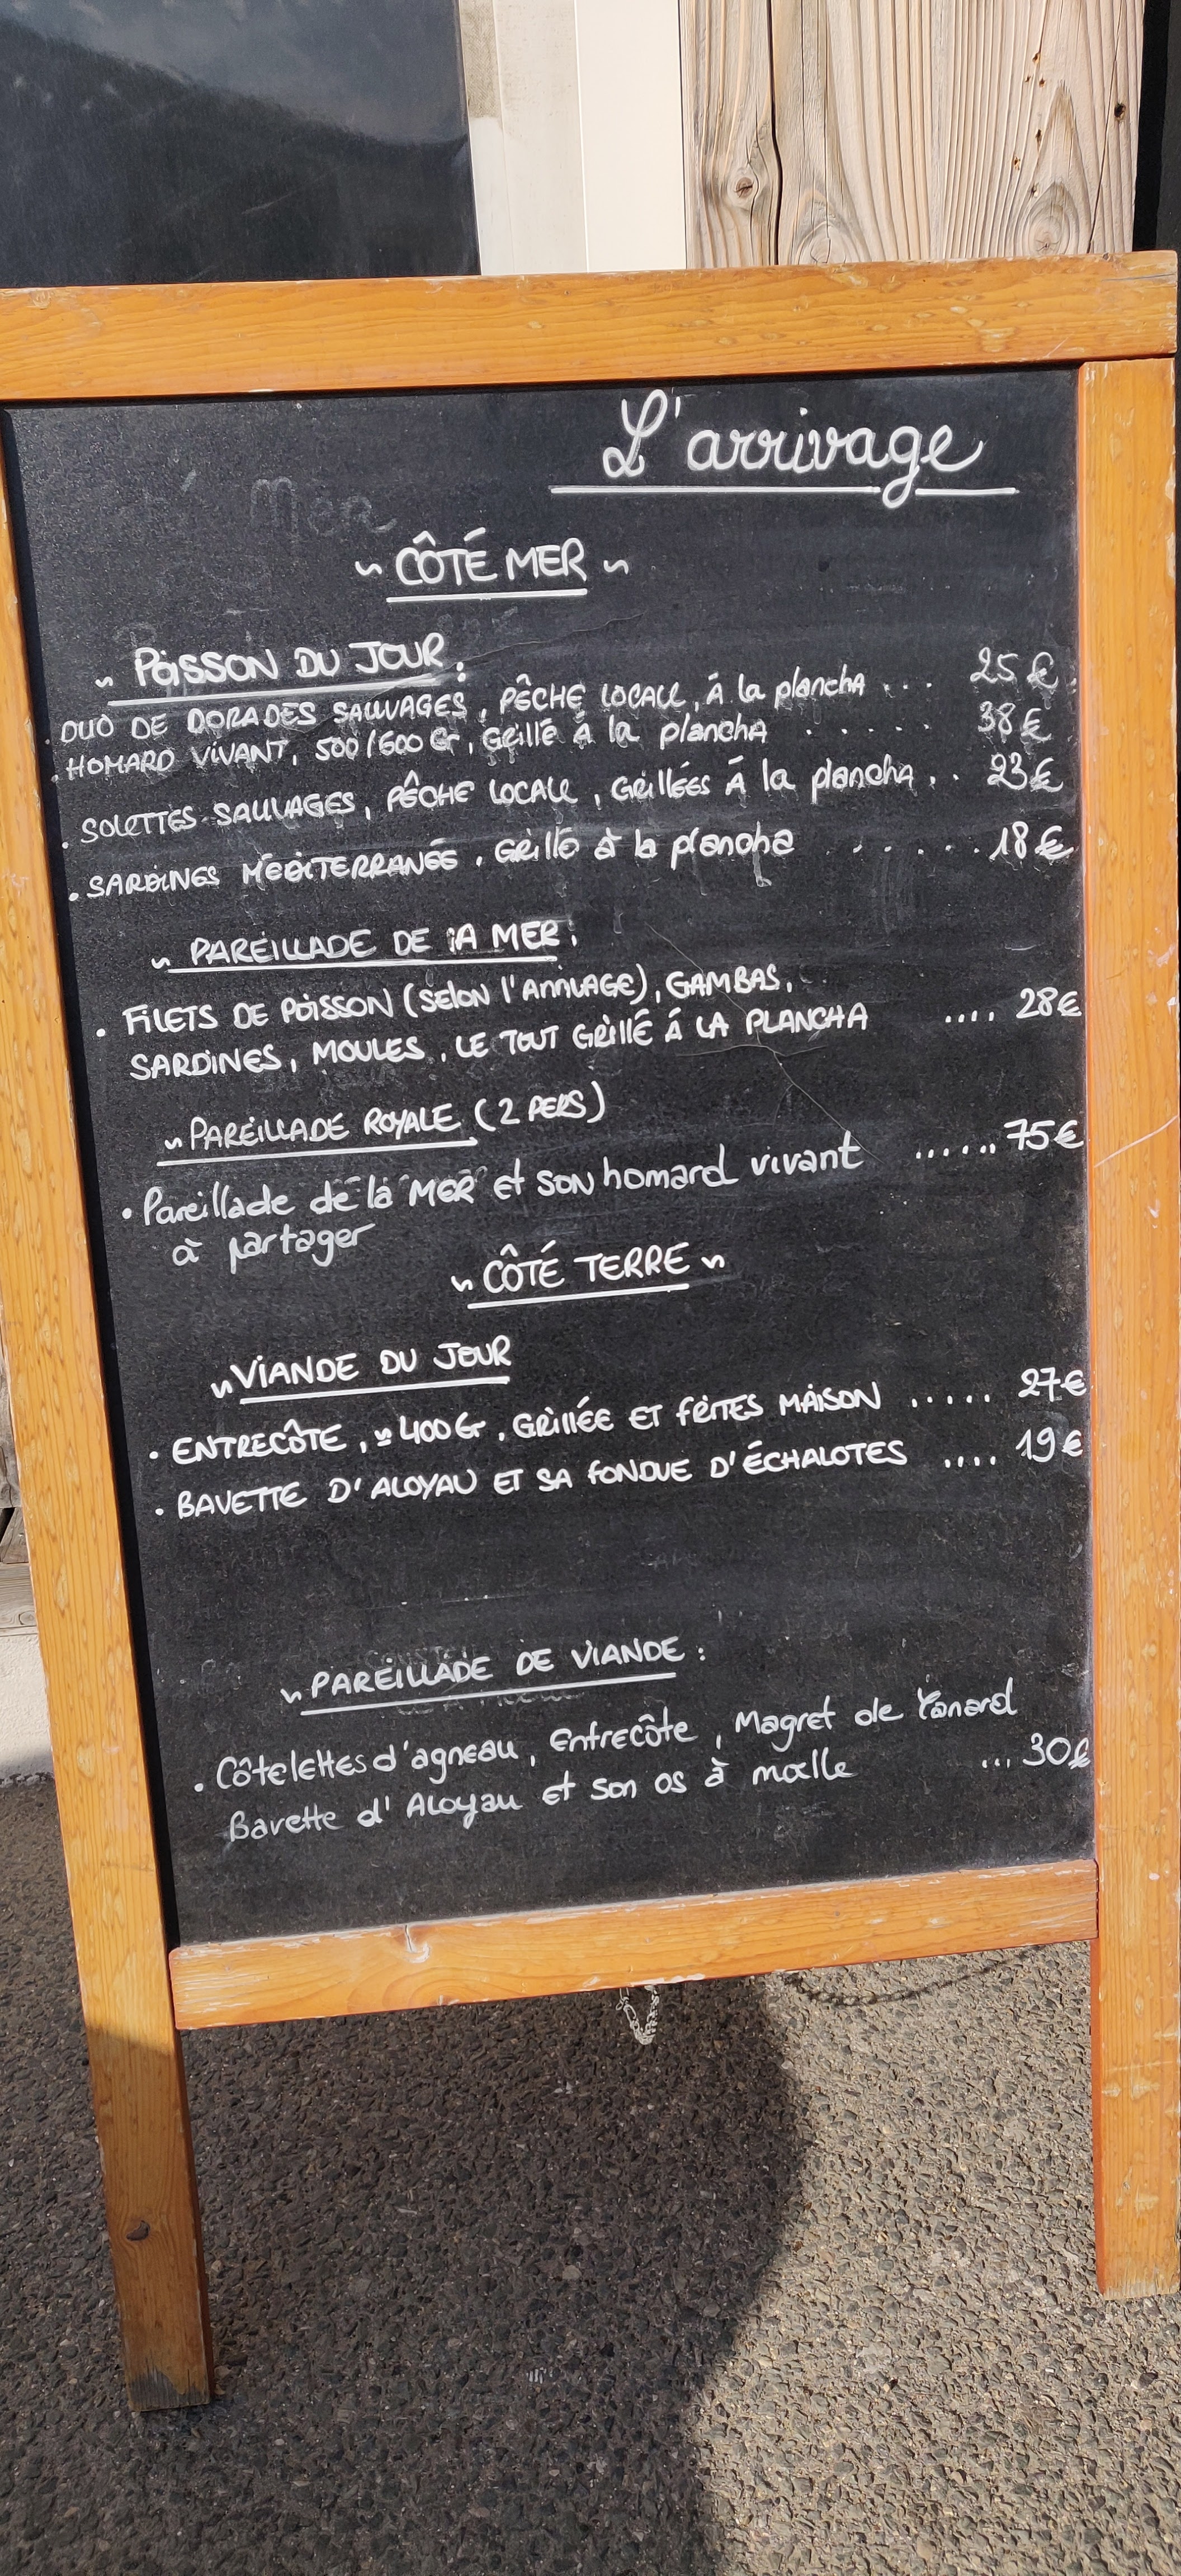 L'arrivage
~ CÔTÉ MER ~
~ POISSON DU JOUR :
. DUO DE DORADES SAUVAGES, PÊCHE LOCALE, À la planchA ... 25 €
. HOMARD VIVANT, 500/600 Gr, Grillé à la planchA ..... 38 €
. SOLETTES SAUVAGES, PÊCHE LOCALE, Grillées À la plancha .. 23 €
. SARDINES MÉDITERRANÉE, Grillé à la plancha ...... 18 €
~ PAREILLADE DE LA MER :
. FILETS DE POISSON (Selon l'ARRIVAGE), GAMBAS,
SARDINES, MOULES, LE TOUT GRILLÉ À LA PLANCHA .... 28€
~ PAREILLADE ROYALE (2 PERS)
• Pareillade de la MER et SON homard vivant ...... 75€
à partager
~ CÔTÉ TERRE ~
~ VIANDE DU JOUR
• ENTRECÔTE, ≃ 400Gr, GRILLÉE ET FRITES MAISON ..... 27€
• BAVETTE D'ALOYAU ET SA FONDUE D'ÉCHALOTES .... 19€
~ PAREILLADE DE VIANDE :
. Côtelettes d'agneau, Entrecôte, Magret de Canard
Bavette d'Aloyau et son os à moelle ... 30€